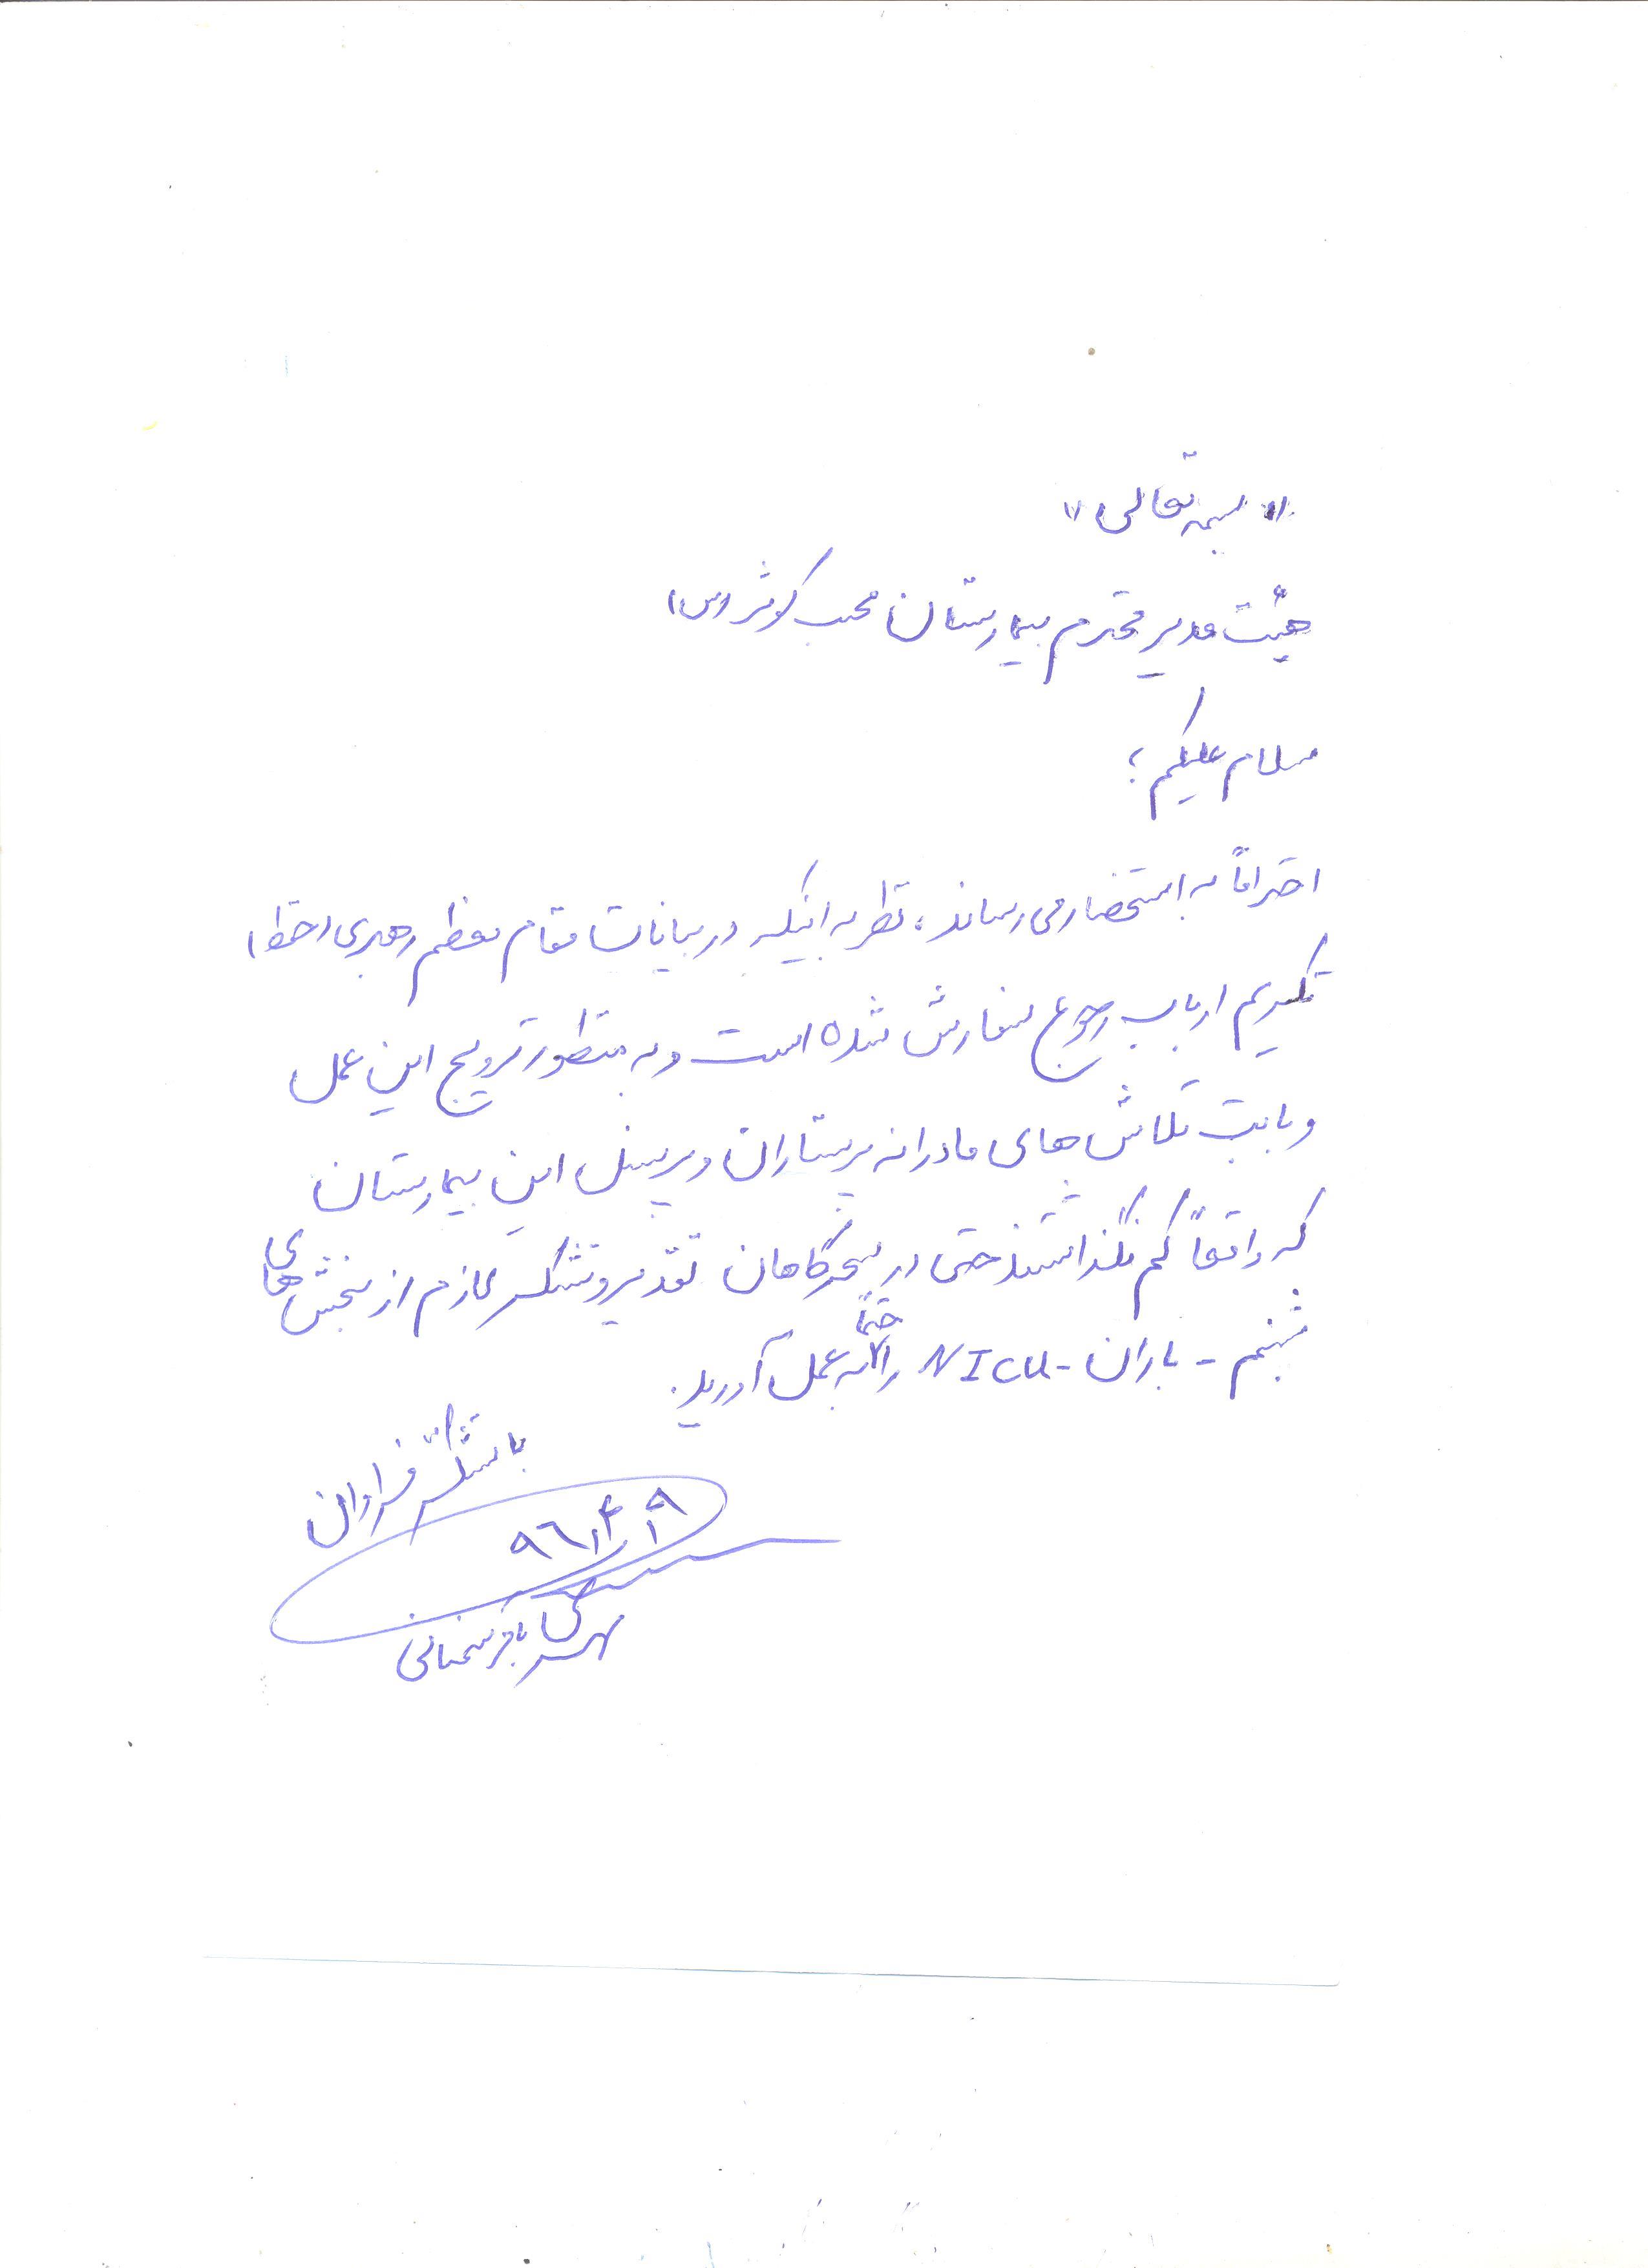 « بسمه تعالی »
هیئت مدیر محترم بیمارستان محب کوثر (س)
سلام علیکم ؛
احتراماً به استحضار می رساند ، نظر به اینکه در بیانات مقام معظم رهبری (حفظ)
تکریم ارباب رجوع سفارش شده است و به منظور ترویج این عمل
و بابت تلاش های مادرانه پرستاران و پرسنل این بیمارستان
که واقعاً کم نگذاشتند حتی در سحرگاهان تقدیر و تشکر لازم از بخش های
شبنم - باران - NICU را حتماً به عمل آورید.
با تشکر فراوان
باقر سمنانی